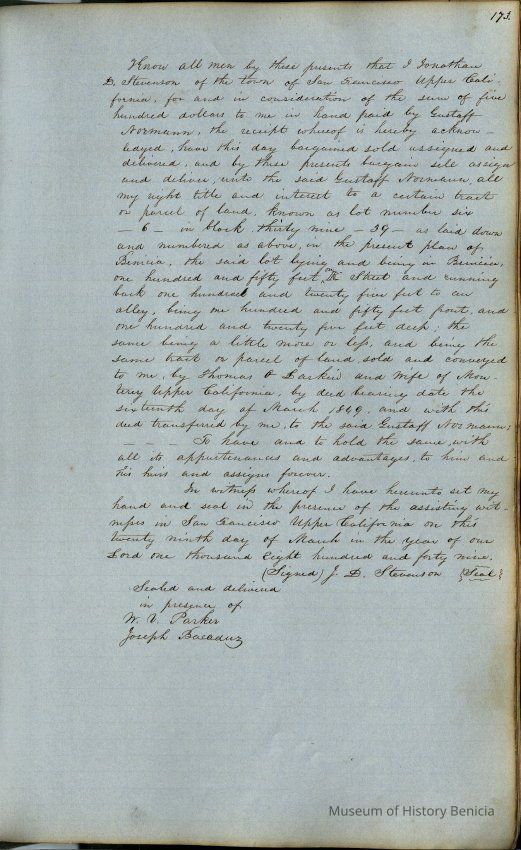 173.
Know all men by these presents that I Jonathan
D. Stevenson of the town of San Francisco Upper Cali-
fornia, for and in consideration of the sum of five
hundred dollars to me in hand paid by Gustaff
Normann, the receipt whereof is hereby acknow-
ledged, have this day bargained sold assigned and
delivered, and by these presents bargain sell assign
and deliver, unto the said Gustaff Normann, all
my right title and interest to a certain tract
or parcel of land, known as lot number six
— 6 — in block thirty nine — 39 — as laid down
and numbered as above, in the present plan of
Benicia, the said lot lying and being in Benicia,
one hundred and fifty feet, on Street and running
back one hundred and twenty five feet to an
alley, being one hundred and fifty feet front, and
one hundred and twenty five feet deep; the
same being a little more or less, and being the
same tract or parcel of land, sold and conveyed
to me, by Thomas O Larkin and wife of Mon-
terey Upper California, by deed bearing date the
sixteenth day of March 1849, and with this
deed transferred by me, to the said Gustaff Normann;
— — — — To have and to hold the same, with
all its appurtenances and advantages, to him and
his heirs and assigns forever.
In witness whereof I have hereunto set my
hand and seal in the presence of the assisting wit-
nesses in San Francisco Upper California on this
twenty ninth day of March in the year of our
Lord one thousand Eight hundred and forty nine.
(Signed) J. D. Stevenson {Seal}
Sealed and delivered
in presence of
W. V. Parker
Joseph
Museum of History Benicia